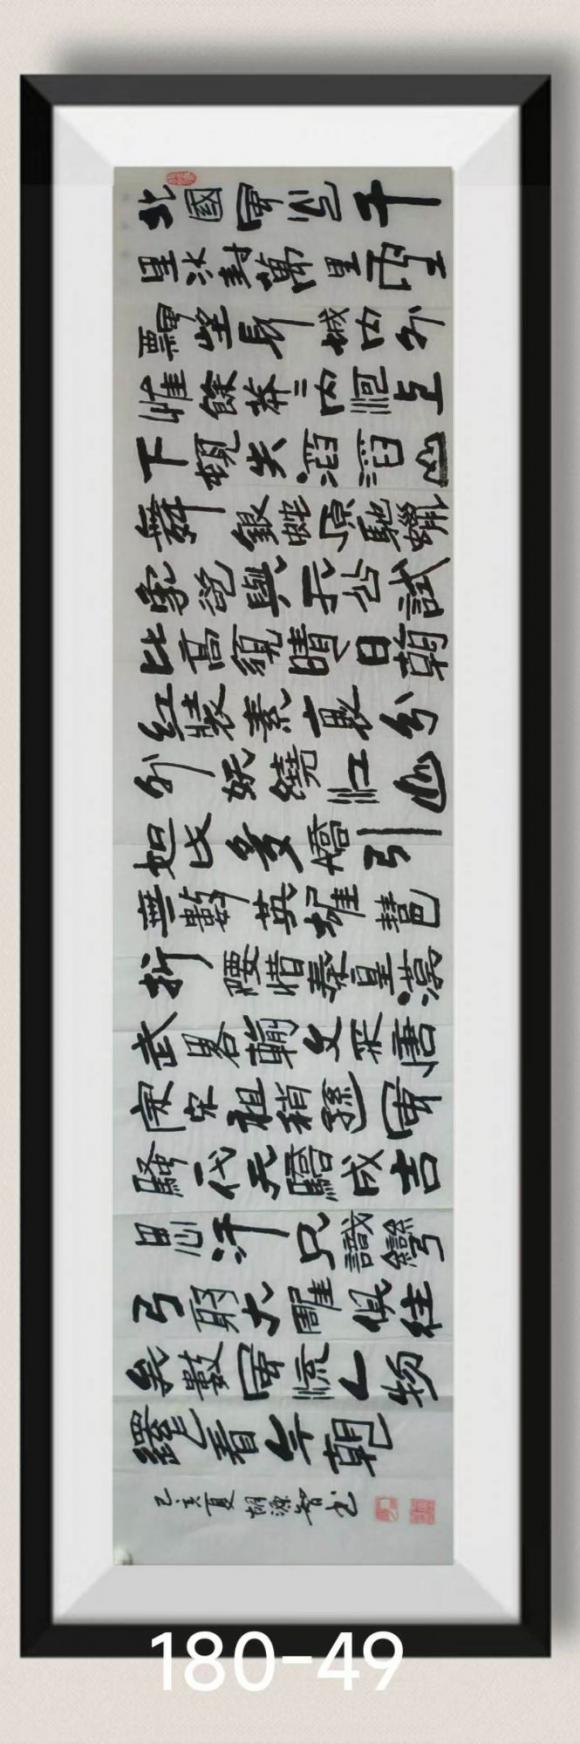 北國風光千
里冰封萬里雪
飄望長城内外
惟餘莽〻大河上
下頓失滔滔山
舞銀蛇原馳蠟
象欲與天公試
比高須晴日看
紅裝素裹分
外妖嬈江山
如此多嬌引
無數英雄競
折腰惜秦皇漢
武略輸文采唐
宗宋祖稍遜風
騷一代天驕成吉
思汗只識彎
弓射大雕俱往
矣數風流人物
還看今朝
己亥夏胡源智书
180-49